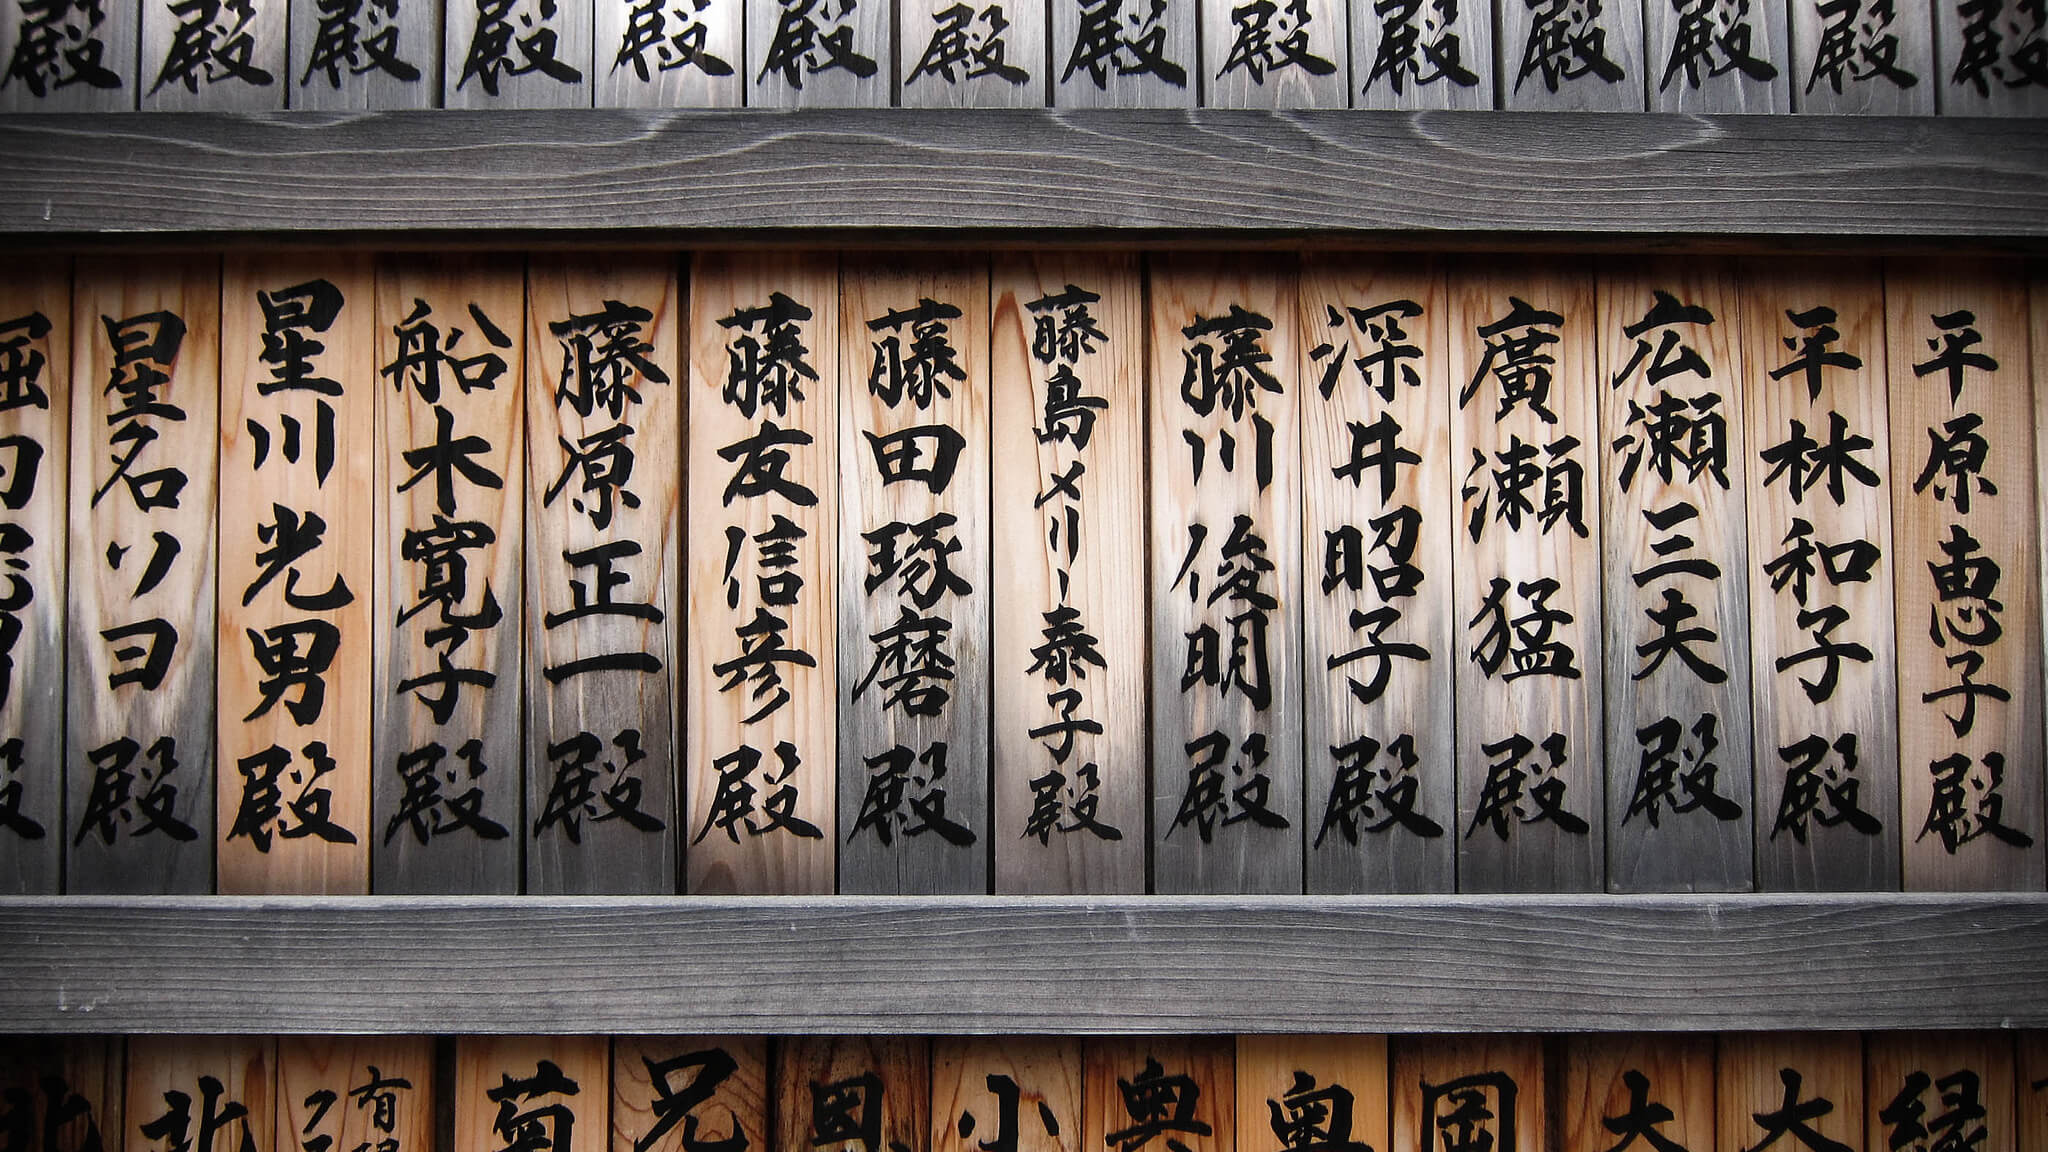 殿
殿
殿
殿
殿
殿
殿
殿
殿
殿
殿
殿
殿
殿
平原恵子殿
平林和子殿
広瀬三夫殿
廣瀬猛殿
深井昭子殿
藤川俊明殿
藤島メリー泰子殿
藤田琢磨殿
藤友信彦殿
藤原正一殿
船木寛子殿
星川光男殿
星名ソヨ殿
縁
大
大
岡
奥
奥
小
兄
菊
有
北
北